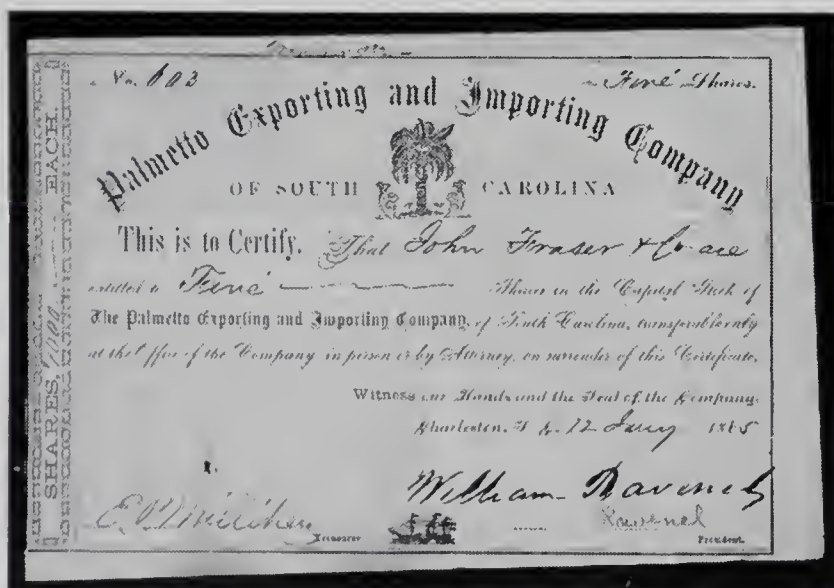 No. 603
Five Shares.
Palmetto Exporting and Importing Company
OF SOUTH CAROLINA
This is to Certify, That John Fraser & Co are
entitled to Five Shares in the Capital Stock of
The Palmetto Exporting and Importing Company, of South Carolina, transferable only
at the Office of the Company in person or by Attorney, on surrender of this Certificate.
Witness our Hands and the Seal of the Company.
Charleston, S. C. 12 Jany 1865
William Ravenel
Ravenel
Treasurer
President.
SHARES, EACH.